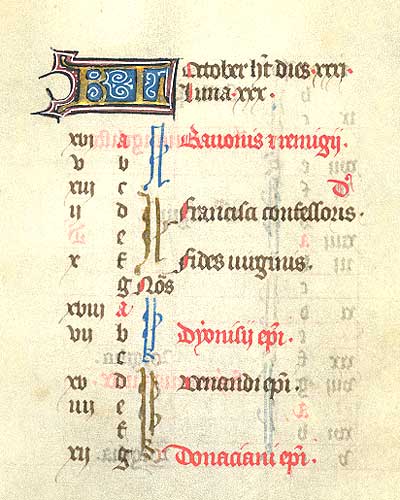 KL October ht dies xxxi
Luna xxx.
xvi a Bauonis remigij.
v b
xiij c
ij d Francisci confessoris.
e
x f Fides uirginis.
g Nōs
xviij a
vij b Dyonisij epi.
c
xv d Venandi epi.
iiij e
f
xij g Donaciani epi.